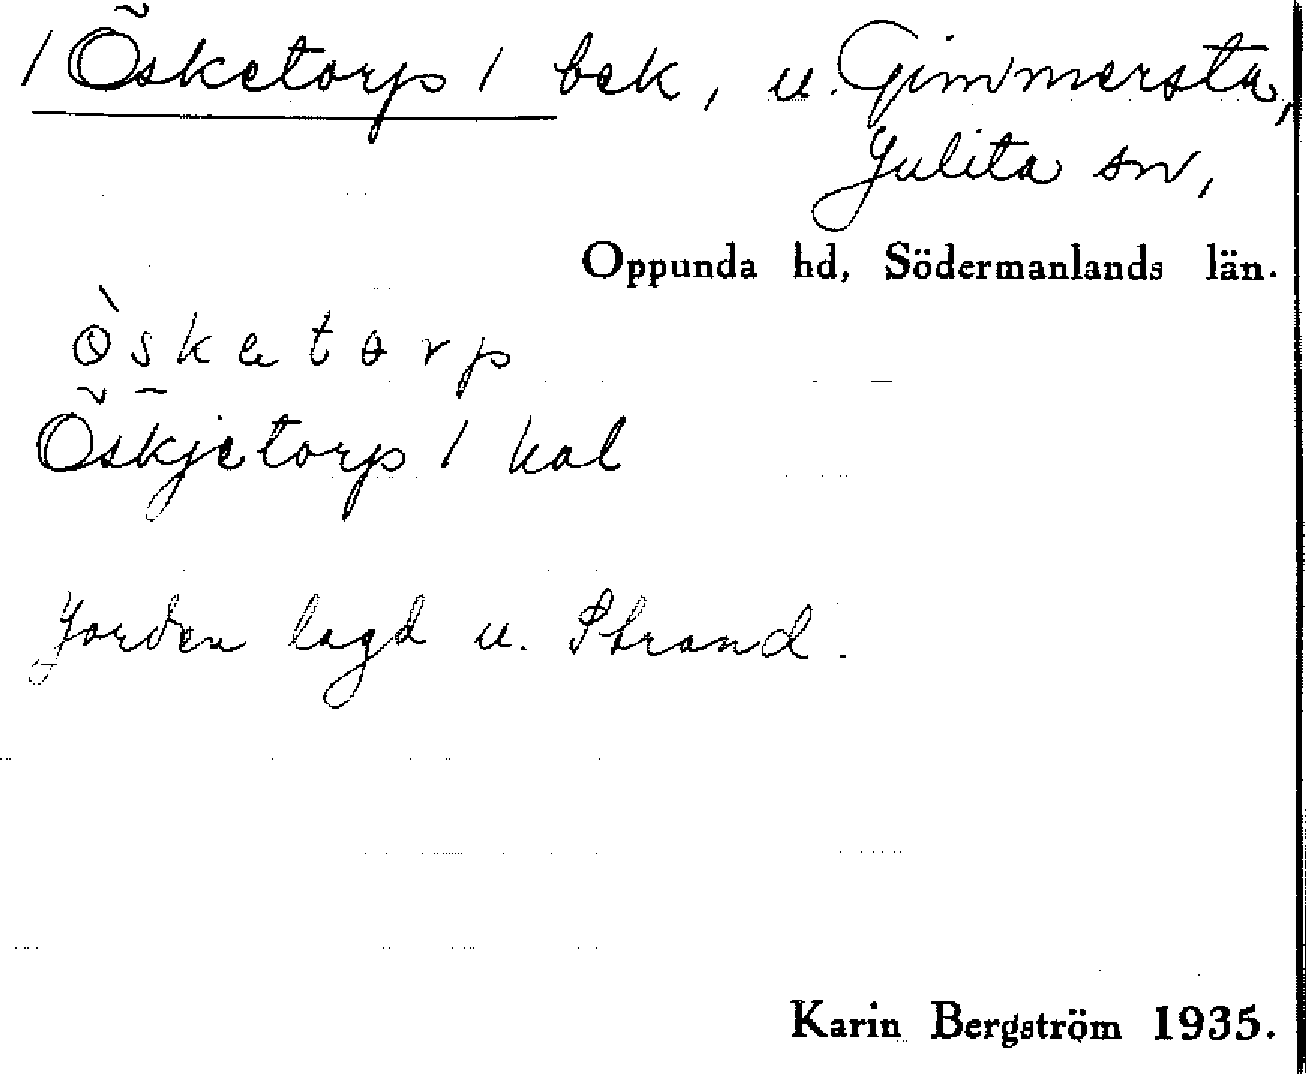 / Õsketorp / bek, u. Gimmersta,
Julita sn,
Oppunda hd, Södermanlands län.
ö̀sketɵrp
Õskjetorp / kal
Jorden lagd u. Strand.
Karin Bergström 1935.